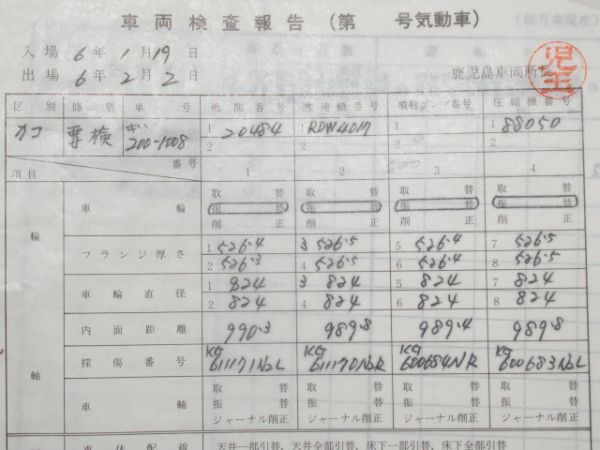 車両検査報告(第 号気動車)
入場 6年 1月19日
出場 6年 2月 2日
鹿児島車両所長
区別 修別 車号 機関番号 変速機番号 噴射ポンプ番号 圧縮機番号
カコ 要検 キハ 200-1508 1 20484 1 RDW4017 1 1 88050
2 2 2 2
番号
項目 1 2 3 4
車輪 取替 取替 取替 取替
振替 振替 振替 振替
削正 削正 削正 削正
輪
フランジ厚さ 1 526.4 3 526.5 5 526.4 7 526.5
2 526.3 4 526.5 6 526.4 8 526.5
車輪直径 1 824 3 824 5 824 7 824
2 824 4 824 6 824 8 824
内面距離 990.3 989.8 989.4 989.8
探傷番号 KG 61171NbL KG 61170NbR KG 600684NR KG 600683NbL
軸
車軸 取替 取替 取替 取替
振替 振替 振替 振替
ジャーナル削正 ジャーナル削正 ジャーナル削正 ジャーナル削正
車体配線 天井一部引替, 天井全部引替, 床下一部引替, 床下全部引替